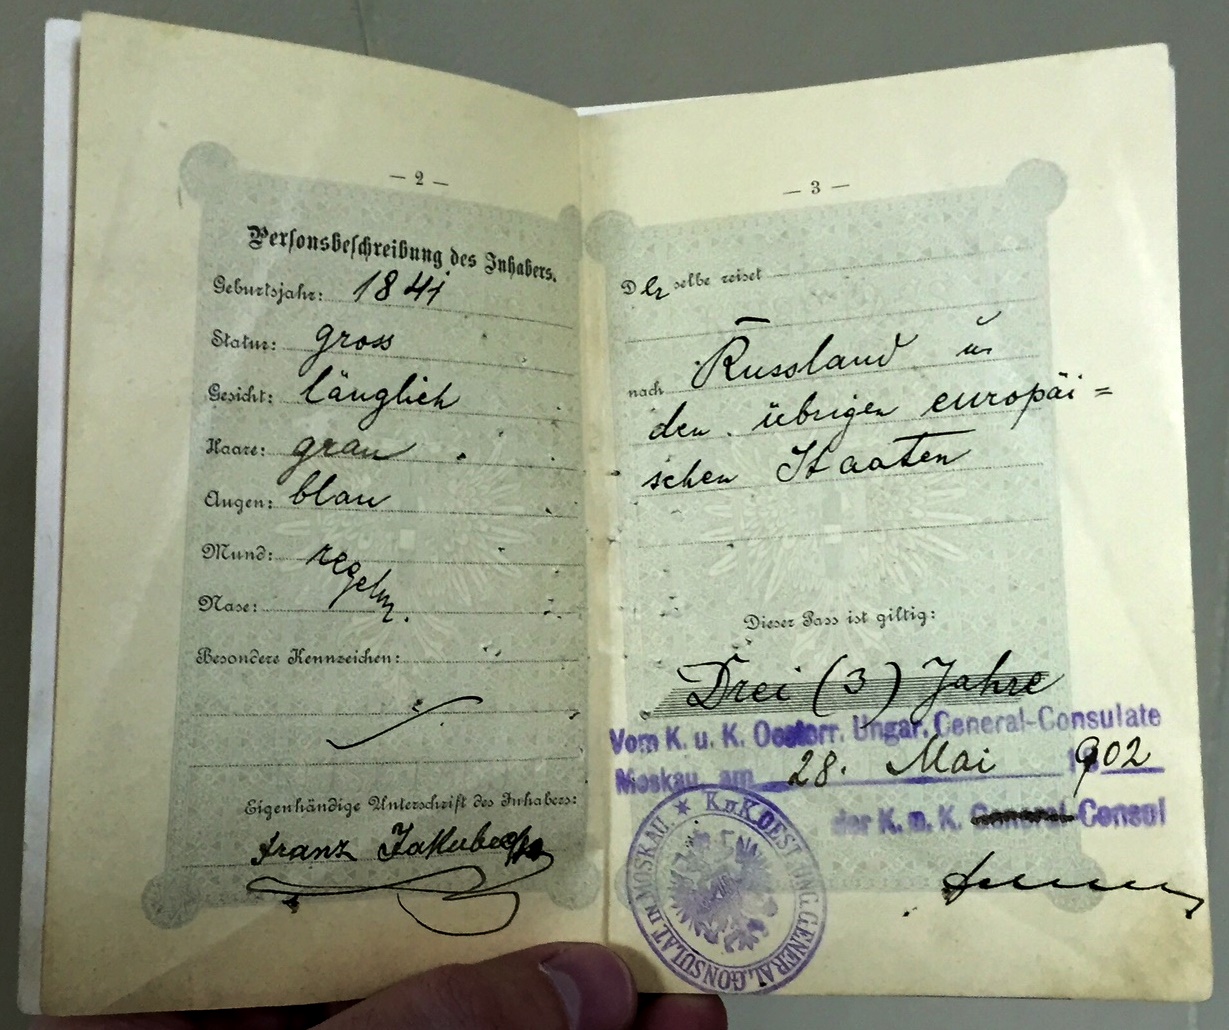 — 2 —
Personsbeschreibung des Inhabers.
Geburtsjahr: 1841
Statur: gross
Gesicht: länglich
Haare: grau
Augen: blau
Mund: regelm.
Nase:
Besondere Kennzeichen:
Eigenhändige Unterschrift des Inhabers:
Franz
— 3 —
Derselbe reiset
nach Russland u
den übrigen europäi=
schen Staaten
Dieser Pass ist giltig:
Drei (3) Jahre
Vom K. u. K. Oesterr. Ungar. General-Consulate
Moskau, am 28. Mai 1902
der K. u. K. General-Consul
K.u.K. OEST. UNG. GENERAL.CONSULAT IN MOSKAU